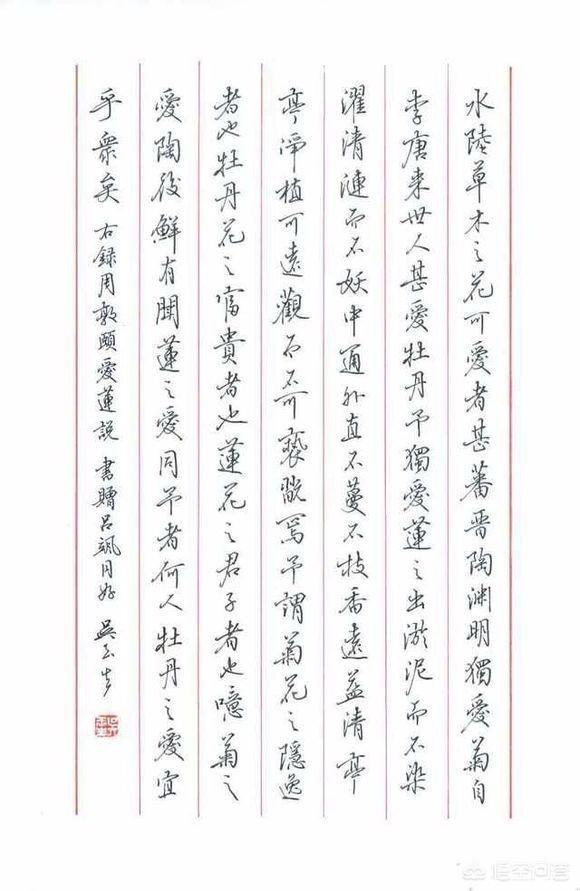 水陸草木之花可愛者甚蕃晉陶渊明獨愛菊自
李唐来世人甚愛牡丹予獨愛蓮之出淤泥而不染
濯清漣而不妖中通外直不蔓不枝香遠益清亭
亭淨植可遠觀而不可褻翫焉予謂菊花之隱逸
者也牡丹花之富貴者也蓮花之君子者也噫菊之
愛陶後鮮有聞蓮之愛同予者何人牡丹之愛宜
乎衆矣 右録周敦頤愛蓮説 書贈吕飒同好 吴玉生
悟空问答